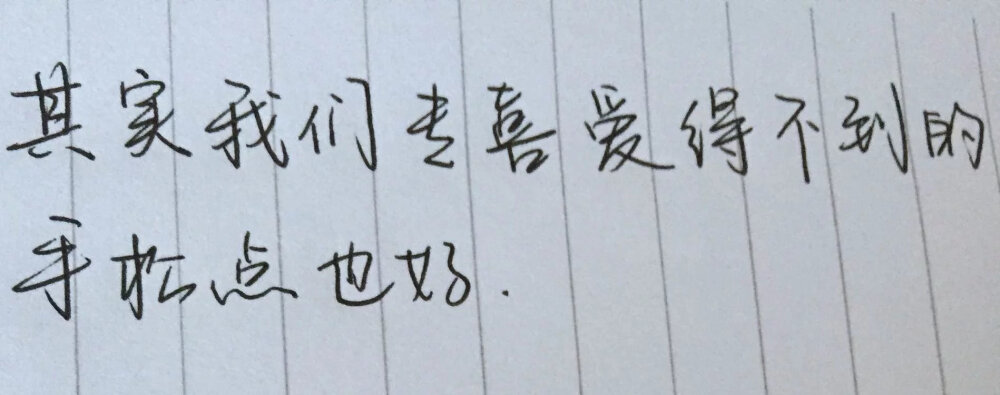 其实我们专喜爱得不到的
手松点也好.